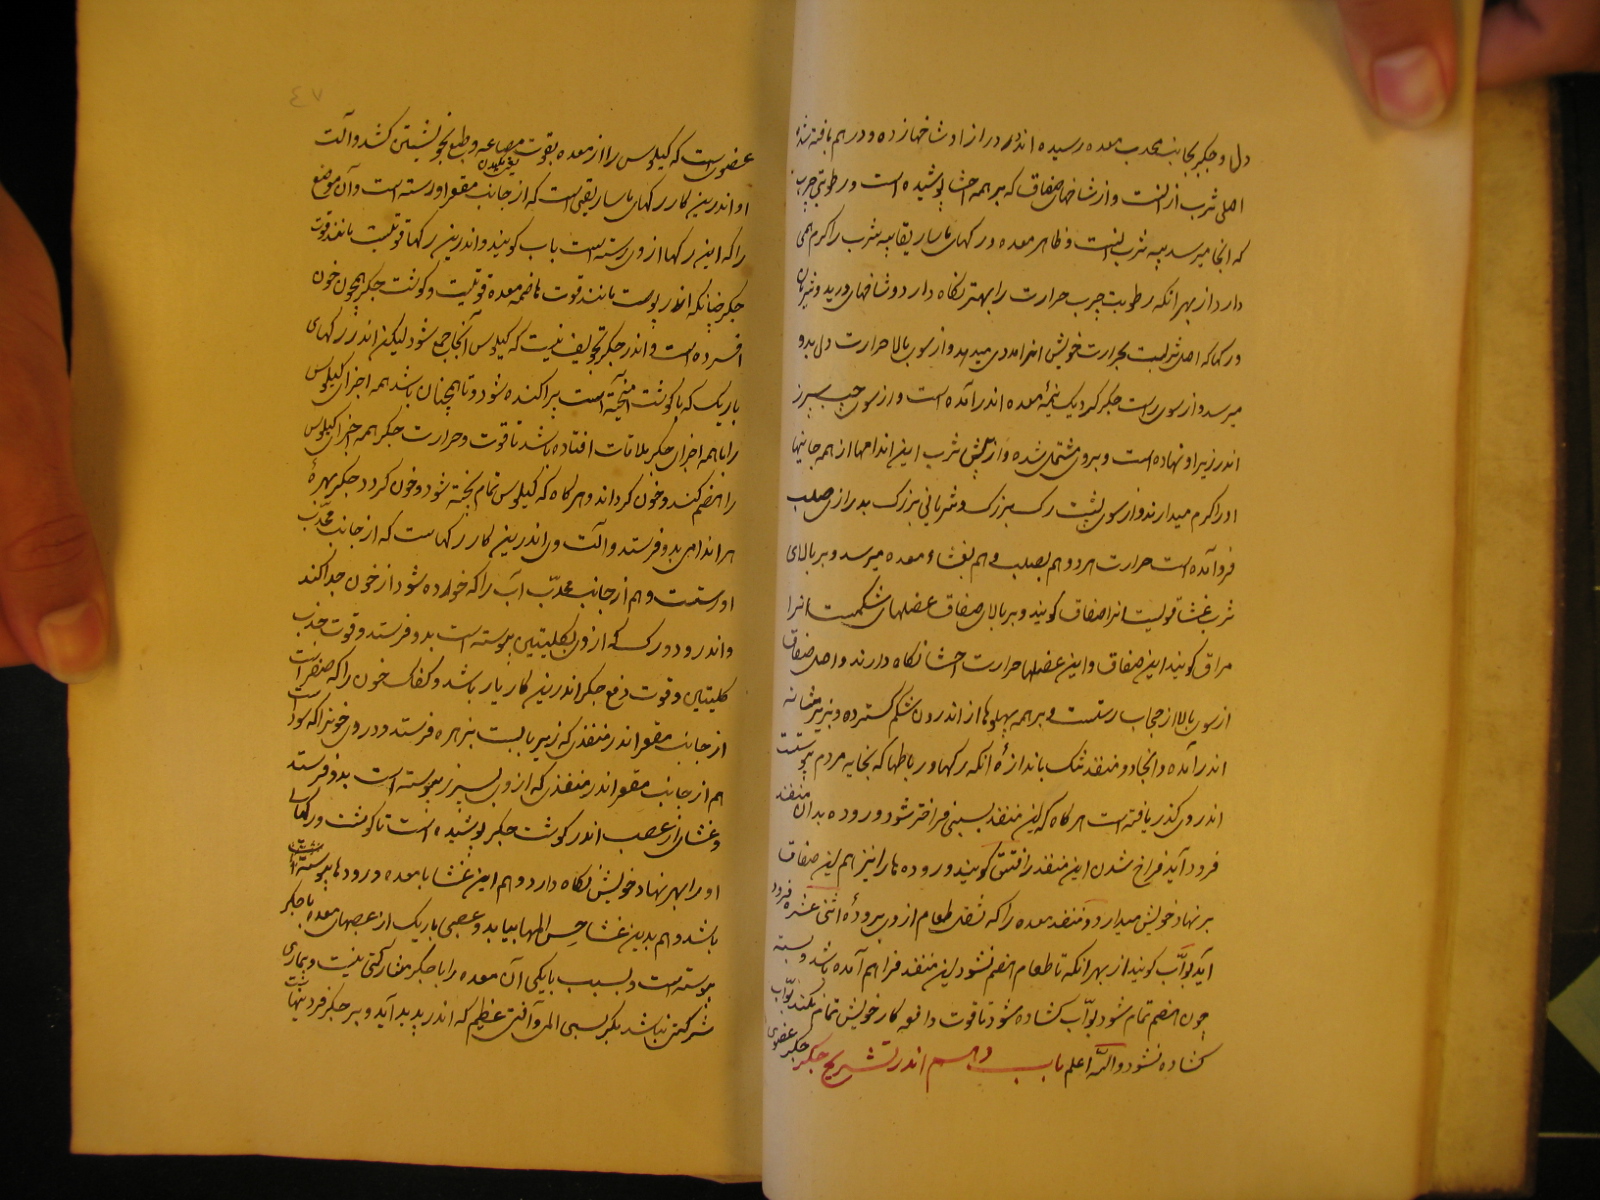 دل و جگر بجانب محدب معده رسیده اندر دراز او شاخها زده و در هم بافته شده
اصل ثرب از آنست و از شاخهای صفاق که بر همه احشا پوشیده است و رطوبتی چرب
که آنجا میرسد پیه ثرب آنست و ظاهر معده و رکهای ماساریقا بپیه ثرب را کرم همی
دارد از بهر آنکه رطوبت چرب حرارت را بهتر نکاه دارد و شاخهای ورید و شریان
و رکها که اصل ثربست بحرارت خویش انرا مددی میدهد و از سوی بالا حرارت دل بدو
میرسد و از سوی راست جگر کرد یک نیمهٔ معده اندر آمده است و از سوی چپ سپرز
اندر زیر او نهاده است و بروی مشتمل شده و از پیش ثرب این اندامها از همه جانبها
او را کرم میدارند و از سوی پشت رک بزرک و شریانی بزرک بدرازی صلب
فرو آمده است حرارت هر دو هم بصلب و هم بغشاء معده میرسد و بر بالای
ثرب غشا قویست انرا صفاق کویند و بر بالای صفاق عضلهای شکمست انرا
مراق کویند این صفاق و این عضلها حرارت احشا نکاه دارند و اصل صفاق
از سوی بالا از حجاب رستست و بر همه پهلوها از اندرون شکم کسترده و بزیر مثانه
اندر آمده و آنجا دو منفذ تنک باندازهٔ آنکه رکها و رباطها که بخایه مردم پیوستست
اندر وی کذر یافته است هر کاه که این منفذ بسببی فراختر شود و روده بدان منفذ
فرود آید فراخ شدن این منفذ را فتق کویند و روده ها را نیز هم این صفاق
بر نهاد خویش میدارد و منفذ معده را که ثقل طعام از وی برودهٔ اثنی عشره فرود
آید بوّاب کویند از بهر آنکه تا طعام هضم نشود این منفذ فراهم آمده باشد و بسته
چون هضم تمام شود بوّاب کشاده شود تا قوت دافعه کار خویش تمام بکند بوّاب
کشاده نشود واللّه اعلم باب دهم اندر تشریح جگر جگر عضوی
٤٧
عضوی است که کیلوس را از معده بقوت مصاعد و طبع بخویشتن کشد و آلت
او اندرین کار رکهای ماساریقی است که از جانب مقعر او رسته است و آن موضع
را که این رکها از وی رسته است باب کویند و اندرین رکها قوتیست مانند قوت
جگر چنانکه اندر پوست مانند قوت هاضمه معده قوتیست و کوشت جگر همچون خون
افسرده است و اندر جگر تجویف نیست که کیلوس آنجا جمع شود لیکن اندر رکهای
باریک که با کوشت او آمیخته است پراکنده شود و تا همچنان باشد همه اجزای کیلوس
را با همه اجزای جگر ملاقات افتاده باشد تا قوت و حرارت جگر همه اجزای کیلوس
را هضم کند و خون کرداند و هر کاه که کیلوس تمام پخته شود و خون کردد جگر بهرهٔ
هر اندامی بدو فرستد و آلت وی اندرین کار رکهاست که از جانب محدّب
او رستست و هم از جانب محدّب آب را که خورده شود از خون جدا کند
و اندر دو رک که از وی بکلیتین پیوسته است بدو فرستد و قوت جذب
کلیتین و قوت دفع جگر اندرین کار یار باشد و کفک خون را که صفراست
از جانب مقعر اندر منفذی که زیر بابست بزهره فرستد و دردی خونرا که سوداست
هم از جانب مقعر اندر منفذی که از وی بسپرز پیوسته است بدو فرستد
و غشائی از عصب اندر کوشت جگر پوشیده است تا کوشت و رکهای
او را بهر نهاد خویش نکاه دارد و هم این غشا با معده و رودها پیوسته
باشد و هم بدین غشا حس المها بیابد و عصبی باریک از عصبهای معده با جگر
پیوسته است و بسبب باریکی آن معده را با جگر مشارکتی نیست و بیماری
شرکتی نباشد مکر بسببی المی و آفتی عظیم که اندر پدید آید و بر جگر فزونیها